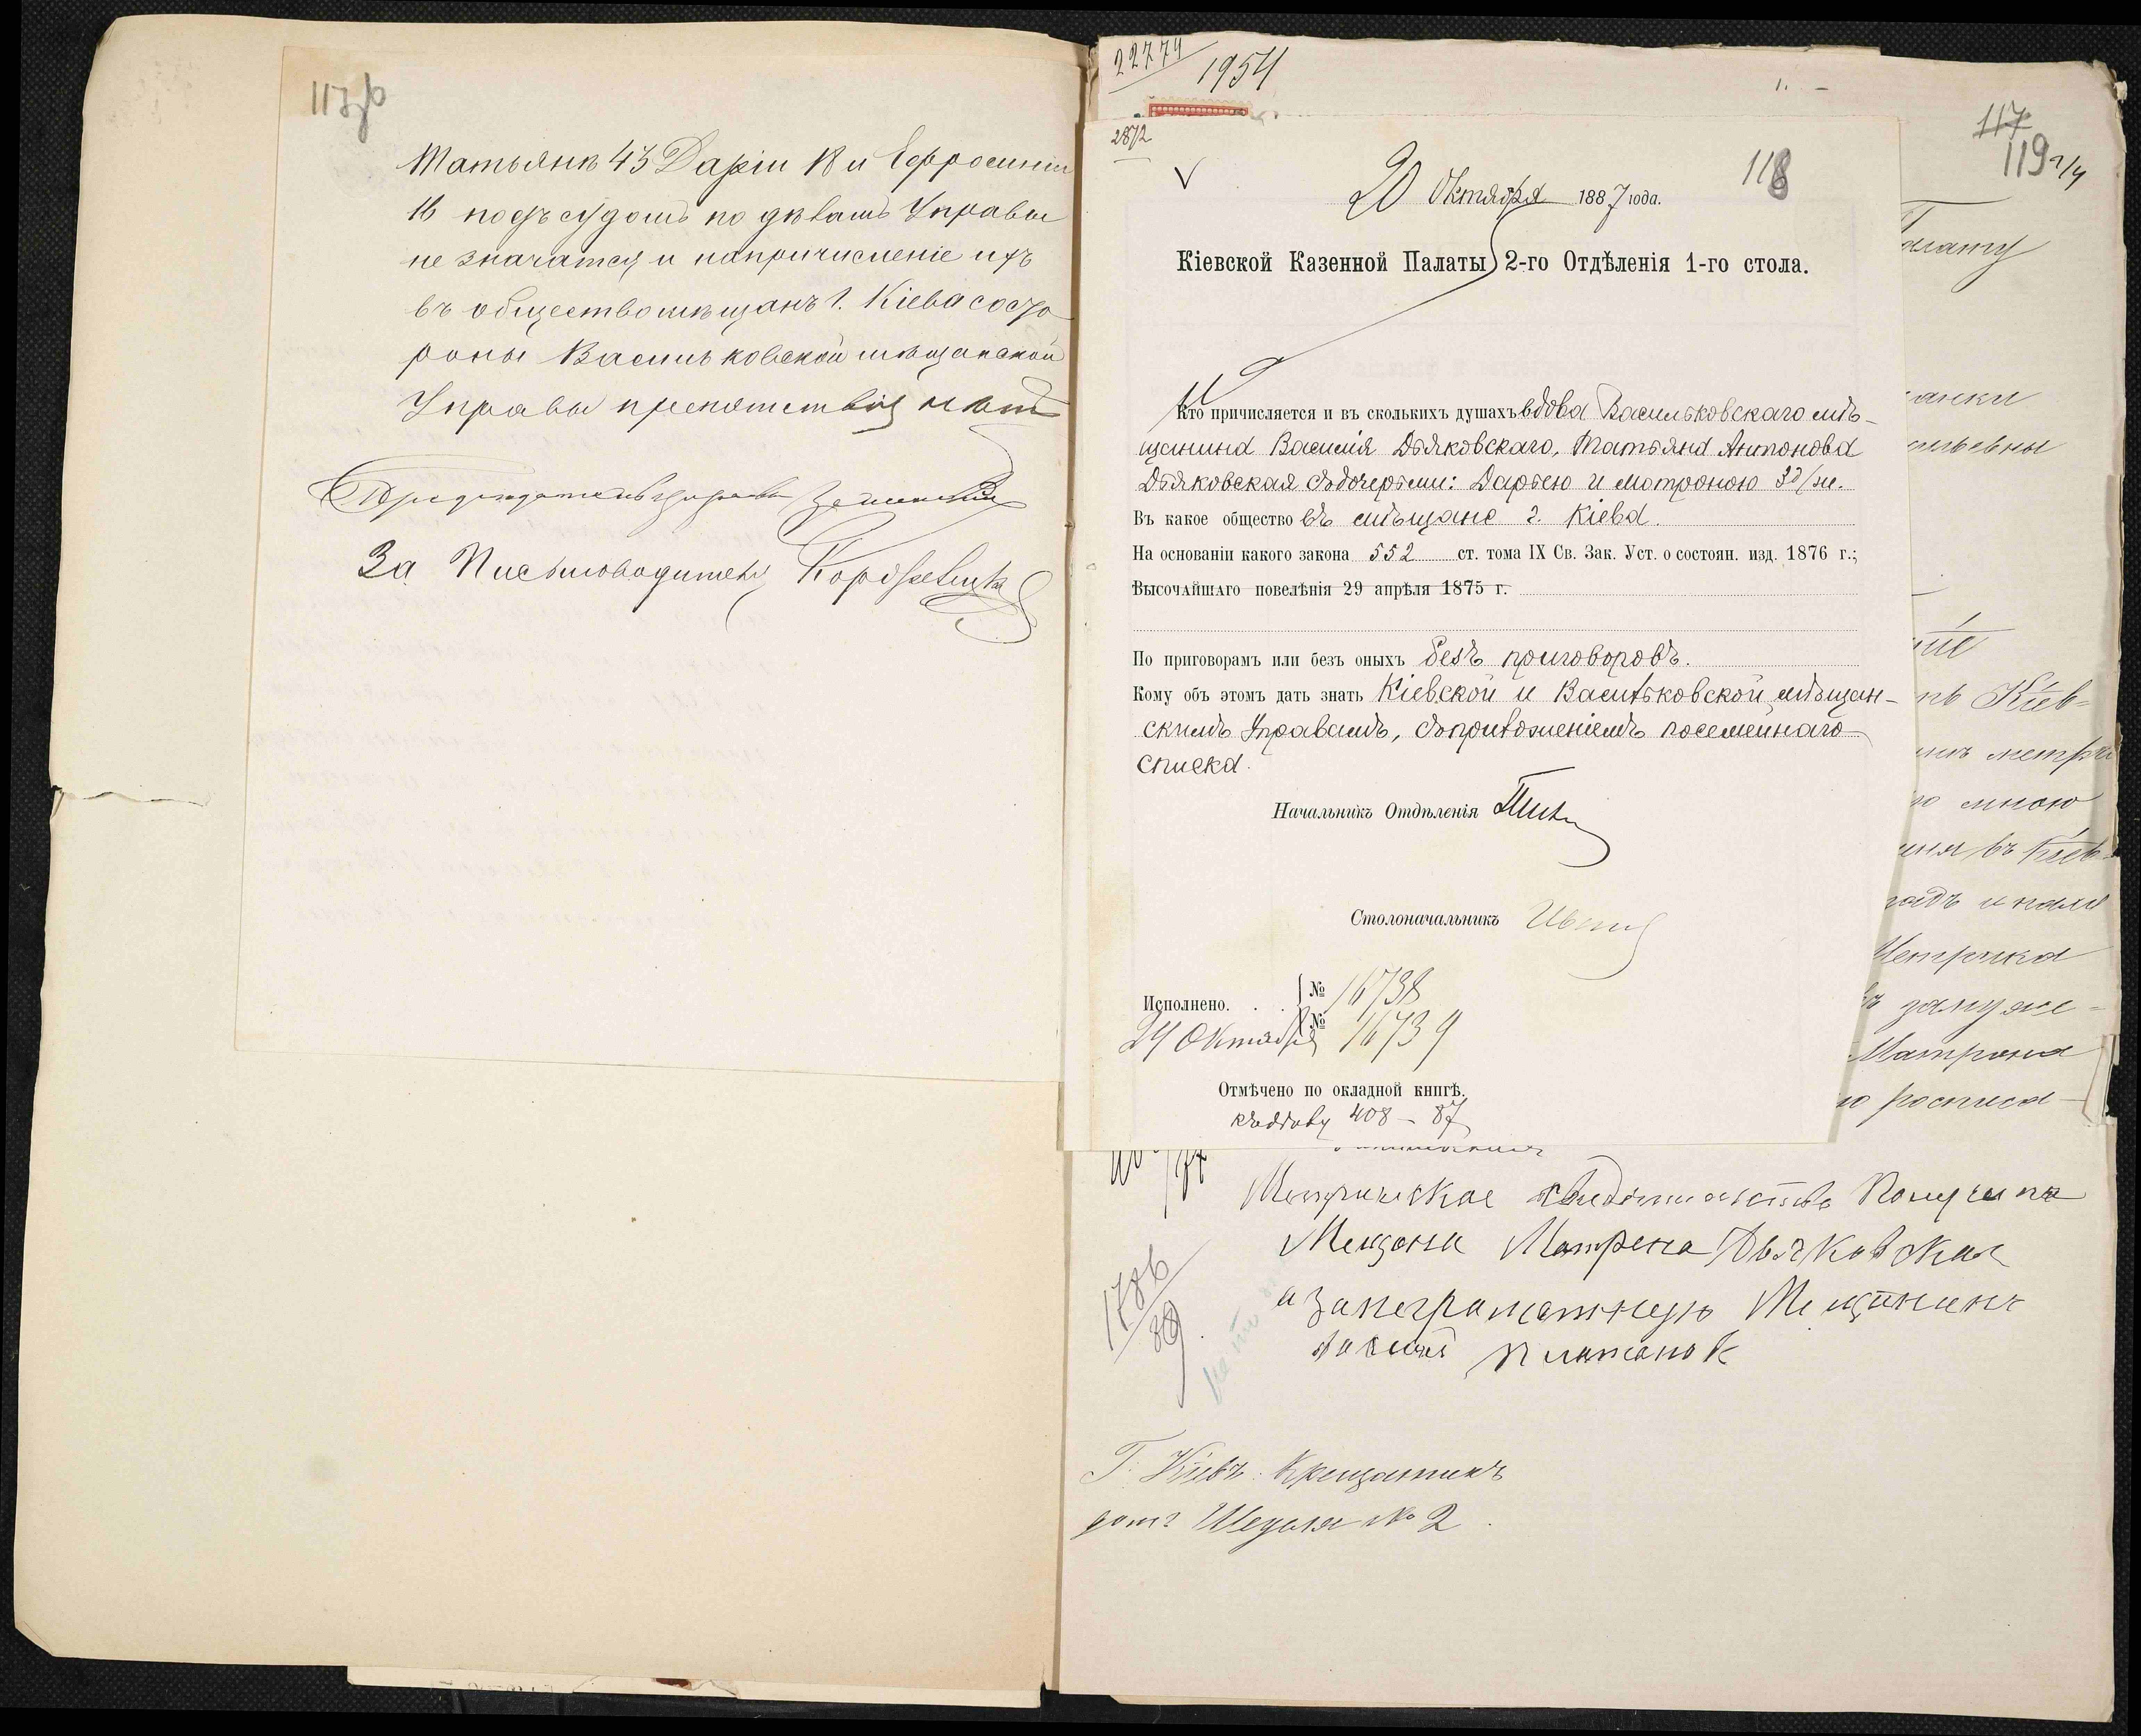 Татьянѣ 43 Даріи 18 и Ефросиніи
16 подъ судомъ по дѣламъ Управы
не значатся и на причисленіе ихъ
въ общество мѣщанъ г. Кіева со сто
роны Васильковской мѣщанской
Управы препятствія нѣтъ
За Письмоводителя
22774
1954
2872
118
20 Октября 1887 года.
Кіевской Казенной Палаты 2-го Отдѣленія 1-го стола.
Кто причисляется и въ сколькихъ душахъ вдова Васильковскаго мѣ-
щанина Василія Дьяковскаго, Татьяна Антонова
Дьяковская съ дочерьми: Дарьею и Матроною
Въ какое общество въ мѣщане г. Кіева.
На основаніи какого закона 552 ст. тома IX Св. Зак. Уст. о состоян. изд. 1876 г.;
Высочайшаго повелѣнія 29 апрѣля 1875 г.
По приговорамъ или безъ оныхъ безъ приговоровъ.
Кому объ этомъ дать знать Кіевской и Васильковской мѣщан-
скимъ Управамъ, съ приложеніемъ посемейнаго
списка.
Начальникъ Отдѣленія
Столоначальникъ
Исполнено. № 16738
24 Октября № 16739
Отмѣчено по окладной книгѣ.
408 — 87
117
119
Палату
анки
ильевны
Кіев-
метри
мною
въ Кіев-
замуже-
Матрона
росписа-
Метрическое свидѣтельство Получила
Мещанка Матрена Дьяковская
а за неграматную Мещанинъ
1786
89
Г. Кіевъ. Крещатикъ
домъ № 2.